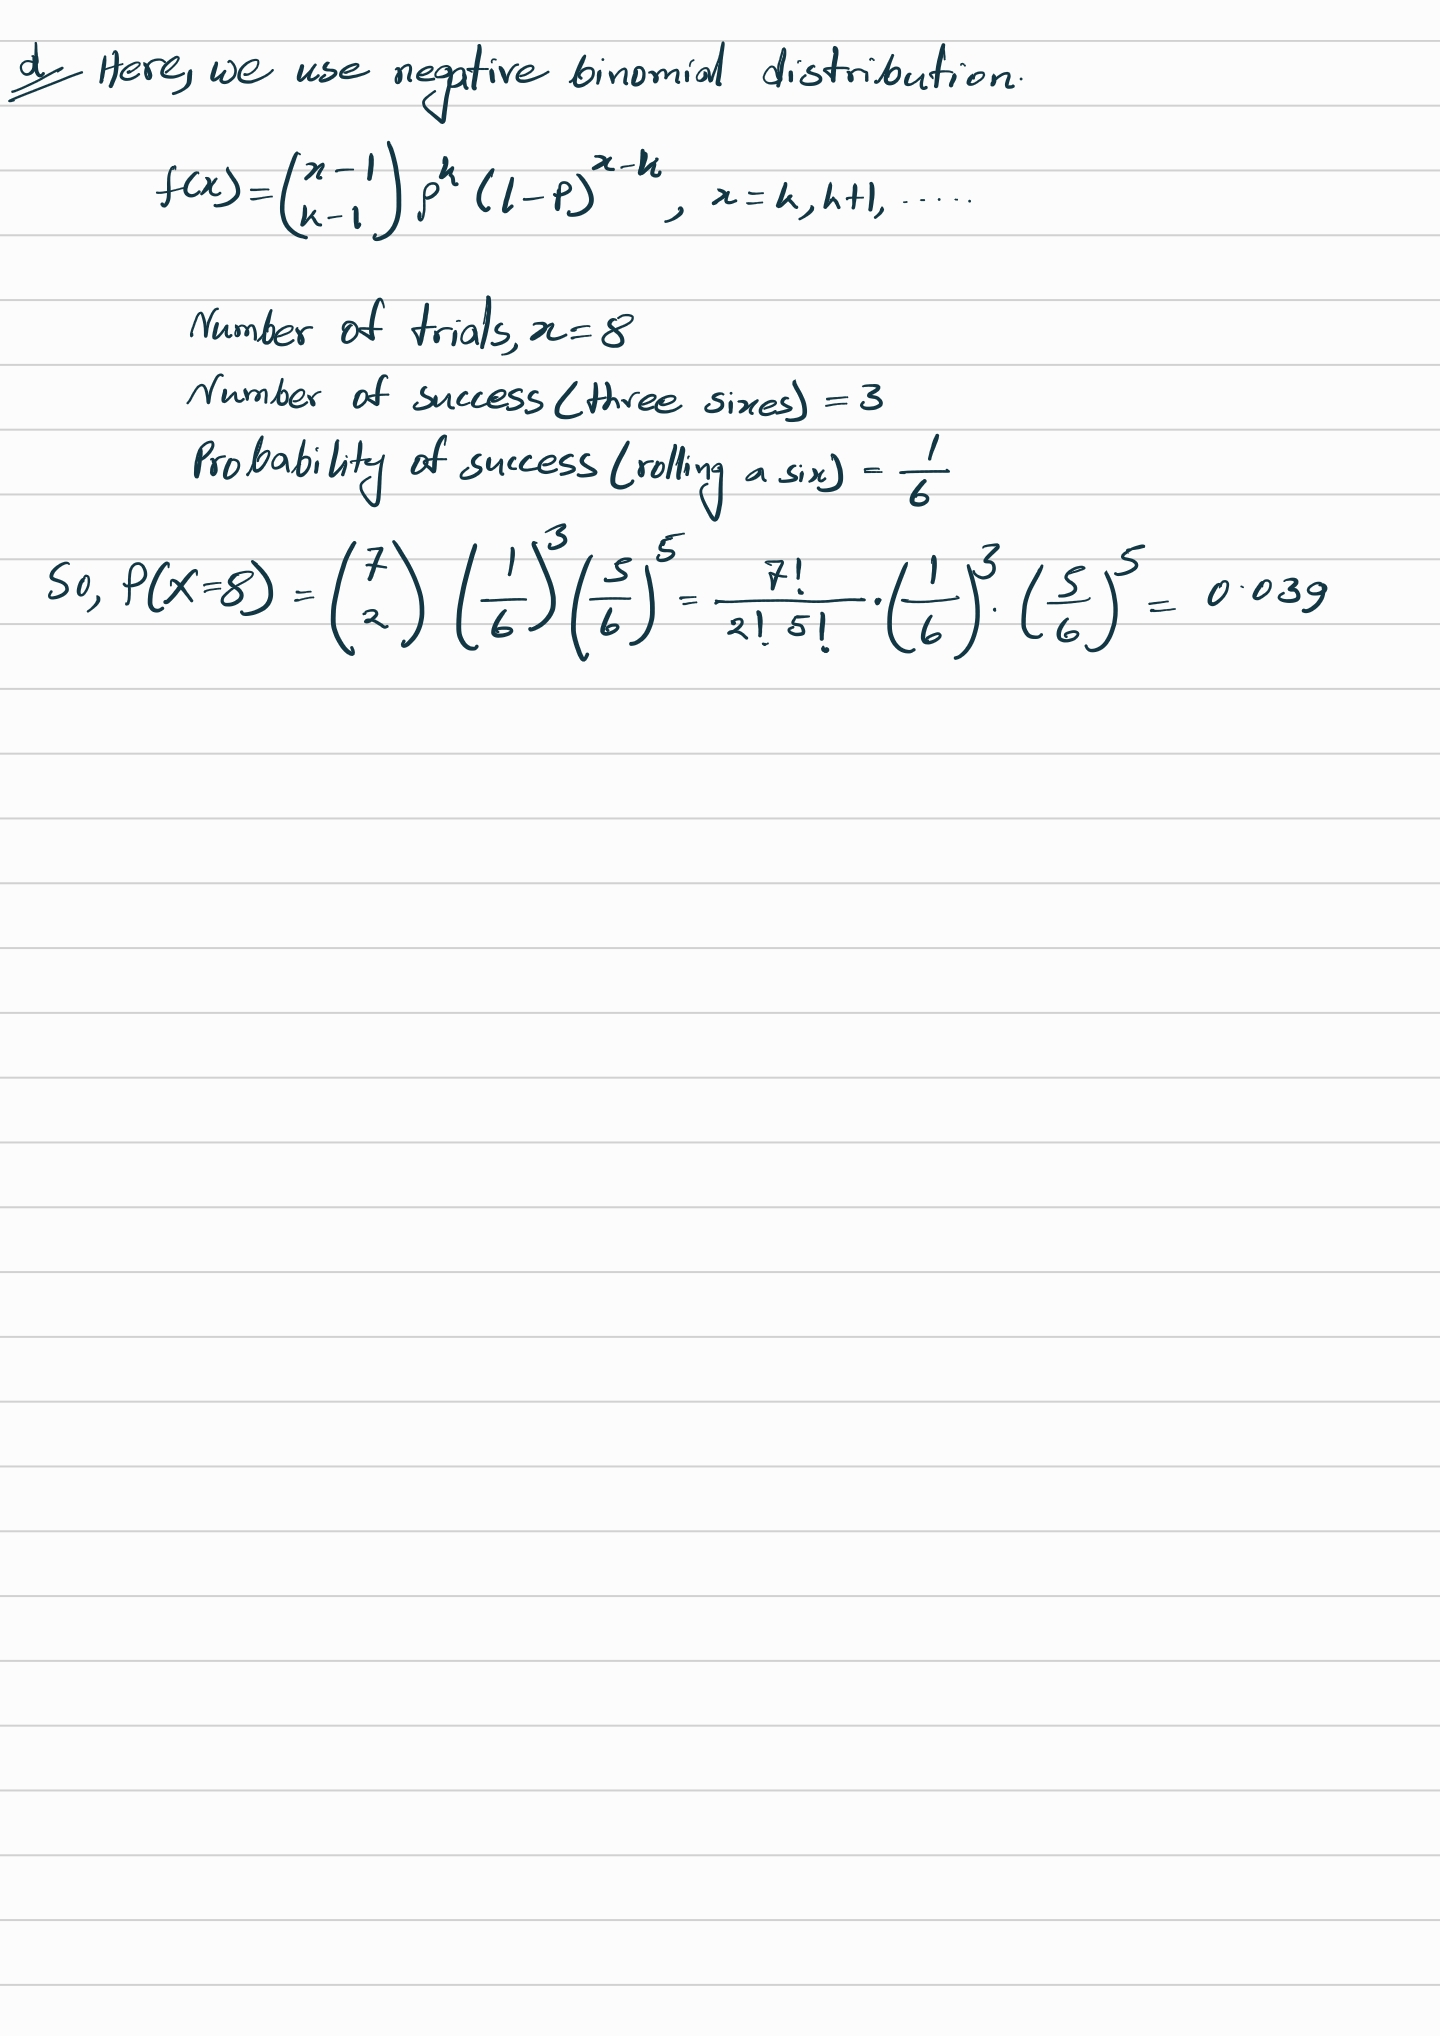 d Here, we use negative binomial distribution.
f(x) = (x-1 k-1) p^k (1-p)^(x-k), x = k, k+1, .....
Number of trials, x = 8
Number of success (three sixes) = 3
Probability of success (rolling a six) = 1/6
So, P(X=8) = (7 2) (1/6)^3 (5/6)^5 = 7!/2! 5! · (1/6)^3 · (5/6)^5 = 0.039